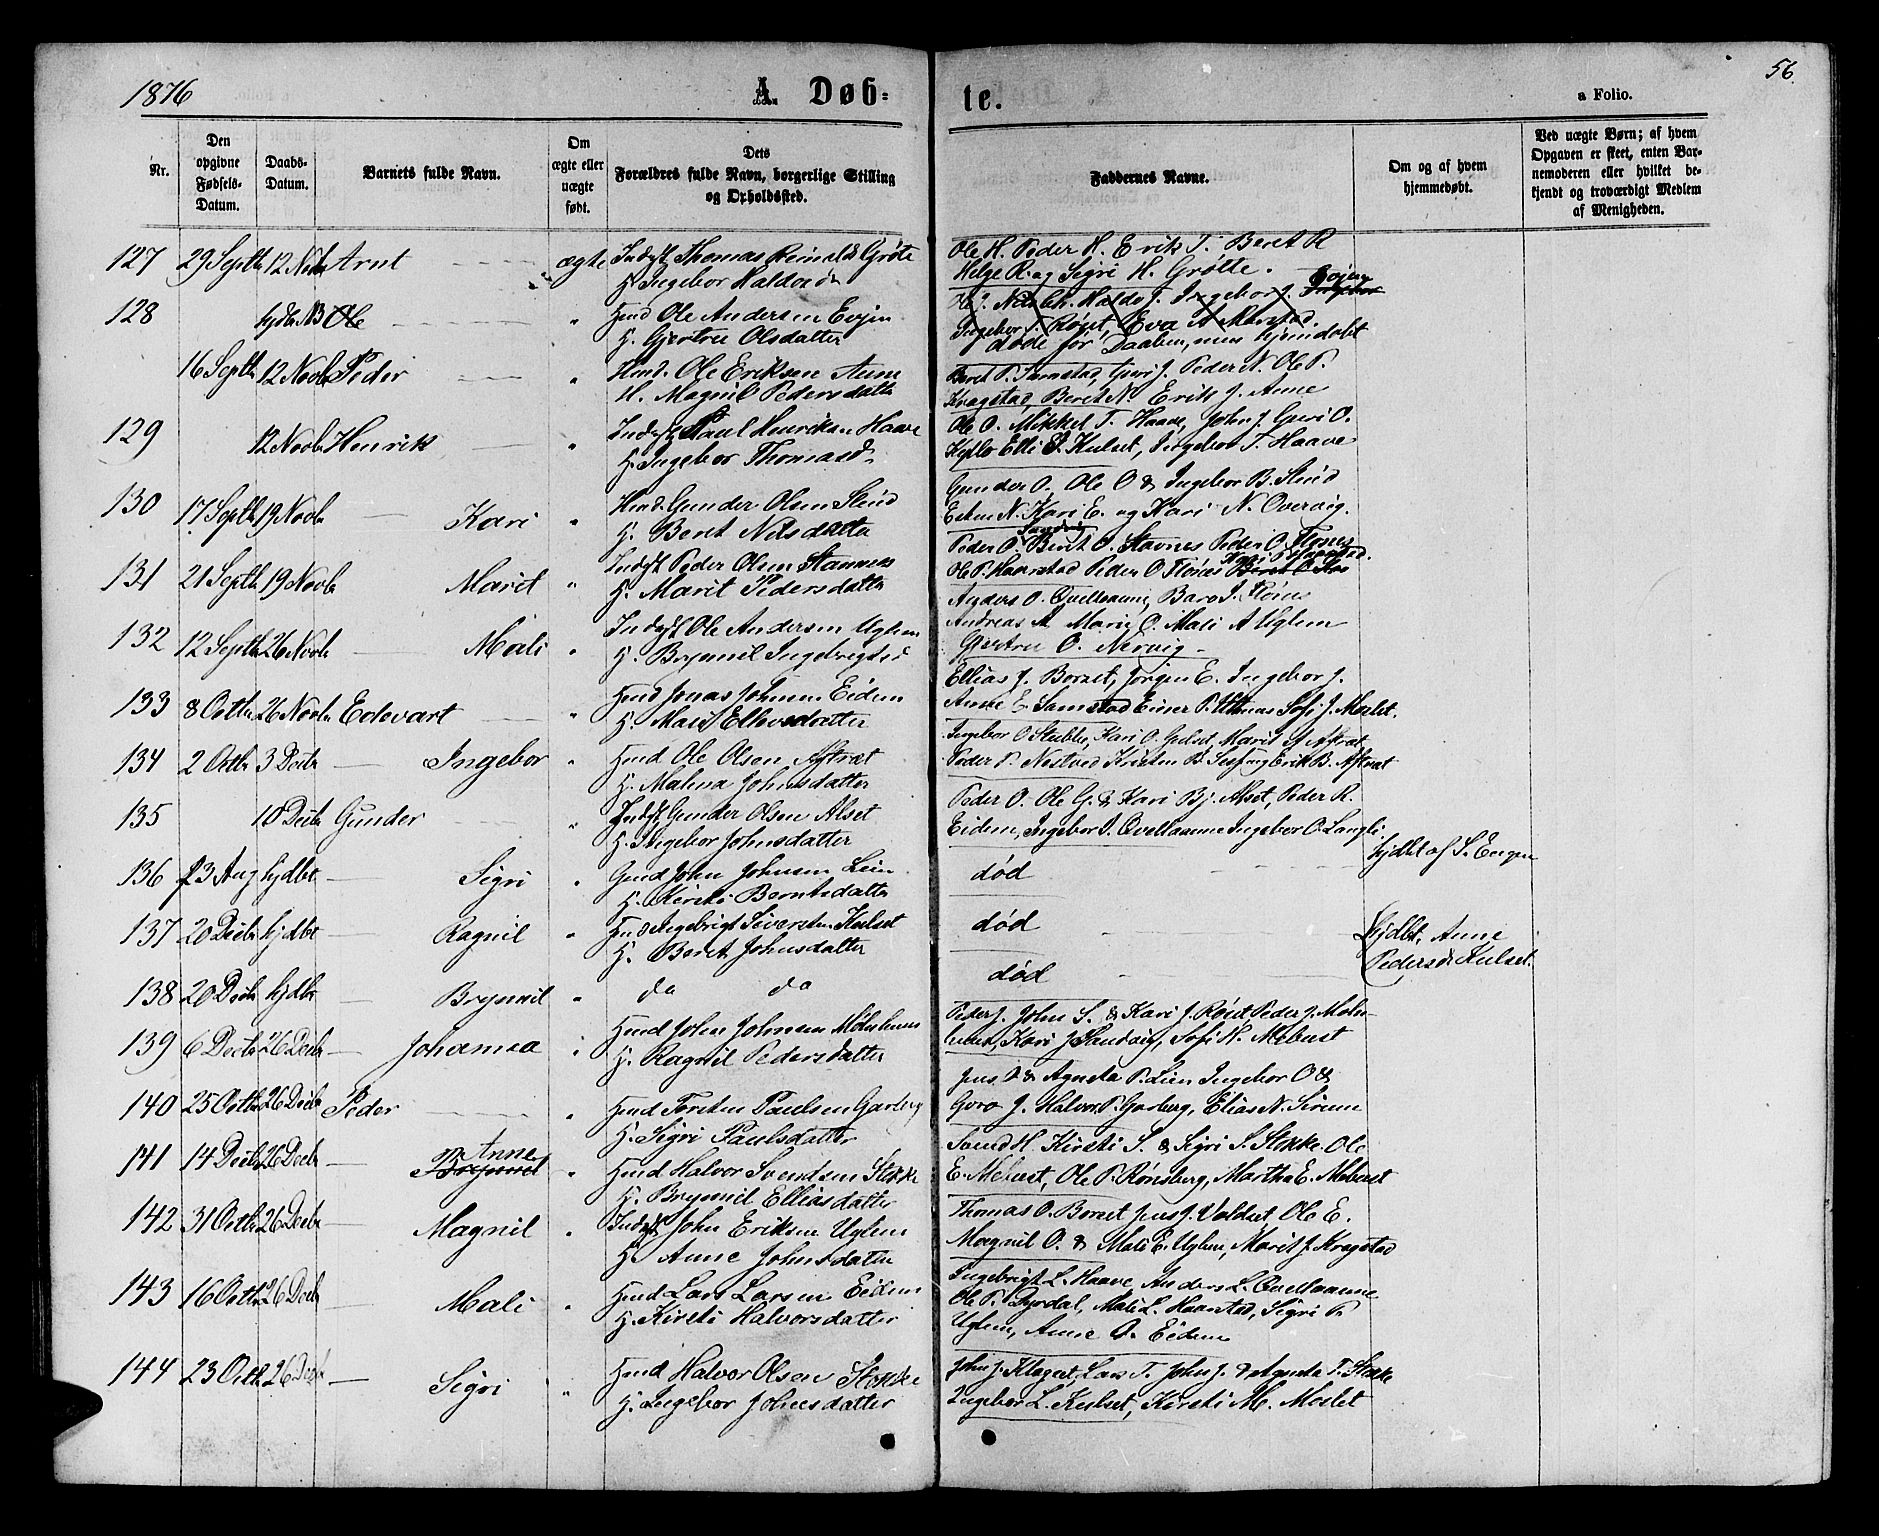 1876
A. Døb-
te.
a Folio.
56.
Nr.
Den opgivne Fødsels-Datum.
Daabs-Datum.
Barnets fulde Navn.
Om ægte eller uægte født.
Dets Forældres fulde Navn, borgerlige Stilling og Opholdssted.
Faddernes Navne.
Om og af hvem hjemmedøbt.
Ved uægte Børn; af hvem Opgaven er skeet, enten Barnemoderen eller hvilket bekjendt og troværdigt Medlem af Menigheden.
127 29 Septbr 12 Novbr Arnt ægte Thomas Grøte
H. Ingebor Haldosd
Ole H. Peder H. Erik T. Beret R
Helge R. og Sigri H. Grøtte.
128 hjdbt Ole " Hmd Ole Andersen Evjen
H. Gjertru Olsdatter
Ingebor Røset, Eva A Marstad
døde før Daaben, men hjemdøbt
16 Septbr 12 Novbr Peder " Hmd. Ole Eriksen Aune
H. Magnil Pedersdatter
Beret P. Samstad, Guri J. Peder N. Ole P.
Kragstad, Beret N. Erik J. Aune
129 12 Novbr Henrik " Indst Paul Henriksen Haave
H. Ingebor Thomasd
Ole O. Mikkel T. Haave, John J. Guri O.
Kyllo Elli J. Kulset, Ingebor T. Haave
130 17 Septbr 19 Novbr Kari " Hmd. Gunder Olsen
H. Beret Nilsdatter
Gunder O. Ole O & Ingebor B.
Esten N. Kari E. og Kari N. Overvig.
131 21 Septbr 19 Novbr Marit " Indst Peder Olsen
H. Marit Pedersdatter
Peder O. Beret O. Stavnes Peder O. Flønes
Ole P. Haarstad Peder O Flønes
Anders O. Qvellaune, Baro J. Flønes
132 12 Septbr 26 Novbr Mali " Indst Ole Andersen Uglem
H. Brynnil Ingebrigtsd
Andreas A Marit O. Mali A Uglem
Gjertru O. Nervig
133 8 Octbr 26 Novbr Edevart " Hmd Jonas Johnsen Eidem
H. Mari Ellevsdatter
Ellias J. Borset, Jørgen E. Ingebor J.
Anne E Samstad Einer P. Sofi J. Moslet.
134 2 Octbr 3 Decbr Ingebor " Hmd Ole Olsen Aftræt
H. Malena Johnsdatter
Ingebor O Stubbe, Kari O. Gulset, Marit A Aftræt
Peder P. Nestvod Kristen P. Erik B. Aftræt
135 10 Decbr Gunder " Indst Gunder Olsen Alset
H. Ingebor Johnsdatter
Peder O. Ole G. & Kari Bj. Alset, Peder R.
Eidem, Ingebor J. Qvellaune Ingebor O. Langli
136 23 Aug hjdbt Sigri " Gmd John Johnsen Lien
H. Kirsti Berntsdatter
død
hjdbt af S. Engen
137 20 Decbr hjdbt Ragnil " Hmd Ingebrigt Siversen Kulset
H. Beret Johnsdatter
død
hjdbt. Anne
Pedersd Kulset.
138 20 Decbr hjdbt Brynnil " do do
død
139 6 Decbr 26 Decbr Johanna " Hmd John Johnsen Mølnhuus
H. Ragnil Pedersdatter
Peder J. John S. & Kari J. Røset Peder J. Møln-
huus, Kari J Sandvig, Sofi H. Mebust
140 25 Octbr 26 Decbr Peder " Hmd Torsten Paulsen Garberg
H. Sigri Paulsdatter
Jens O & Agneta P. Lien Ingebor O &
Goro J. Halvor P. Garberg, Elias N. Sirum
141 14 Decbr 26 Decbr Anne Brynnil " Hmd Halvor Svendsen Stokke
H. Brynnil Elliasdatter
Svend H. Kirsti S. & Sigri S. Stokke Ole
E. Mebust, Ole P. Rønsberg, Martha E. Mebust
142 31 Octbr 26 Decbr Magnil " Indst John Eriksen Uglem
H. Anne Johnsdatter
Thomas O. Borset Jens J. Voldset Ole E.
Magnil O. & Mali E. Uglem, Marit J. Kragstad
143 16 Octbr 26 Decbr Mali " Hmd Lars Larsen Eidem
H. Kirsti Halvorsdatter
Ingebrigt L. Haave Anders L. Qvellaune
Ole P. Dyrdal, Mali L. Haarstad, Sigri P.
Uglem, Anne O. Eidem
144 23 Octbr 26 Decbr Sigri " Hmd Halvor Olsen Stokke
H. Ingebor Johnsdatter
John J. Klæget, Lars T. John J. & Agneta T. Stokke
Ingebor L. Kulset, Kirsti M. Moslet